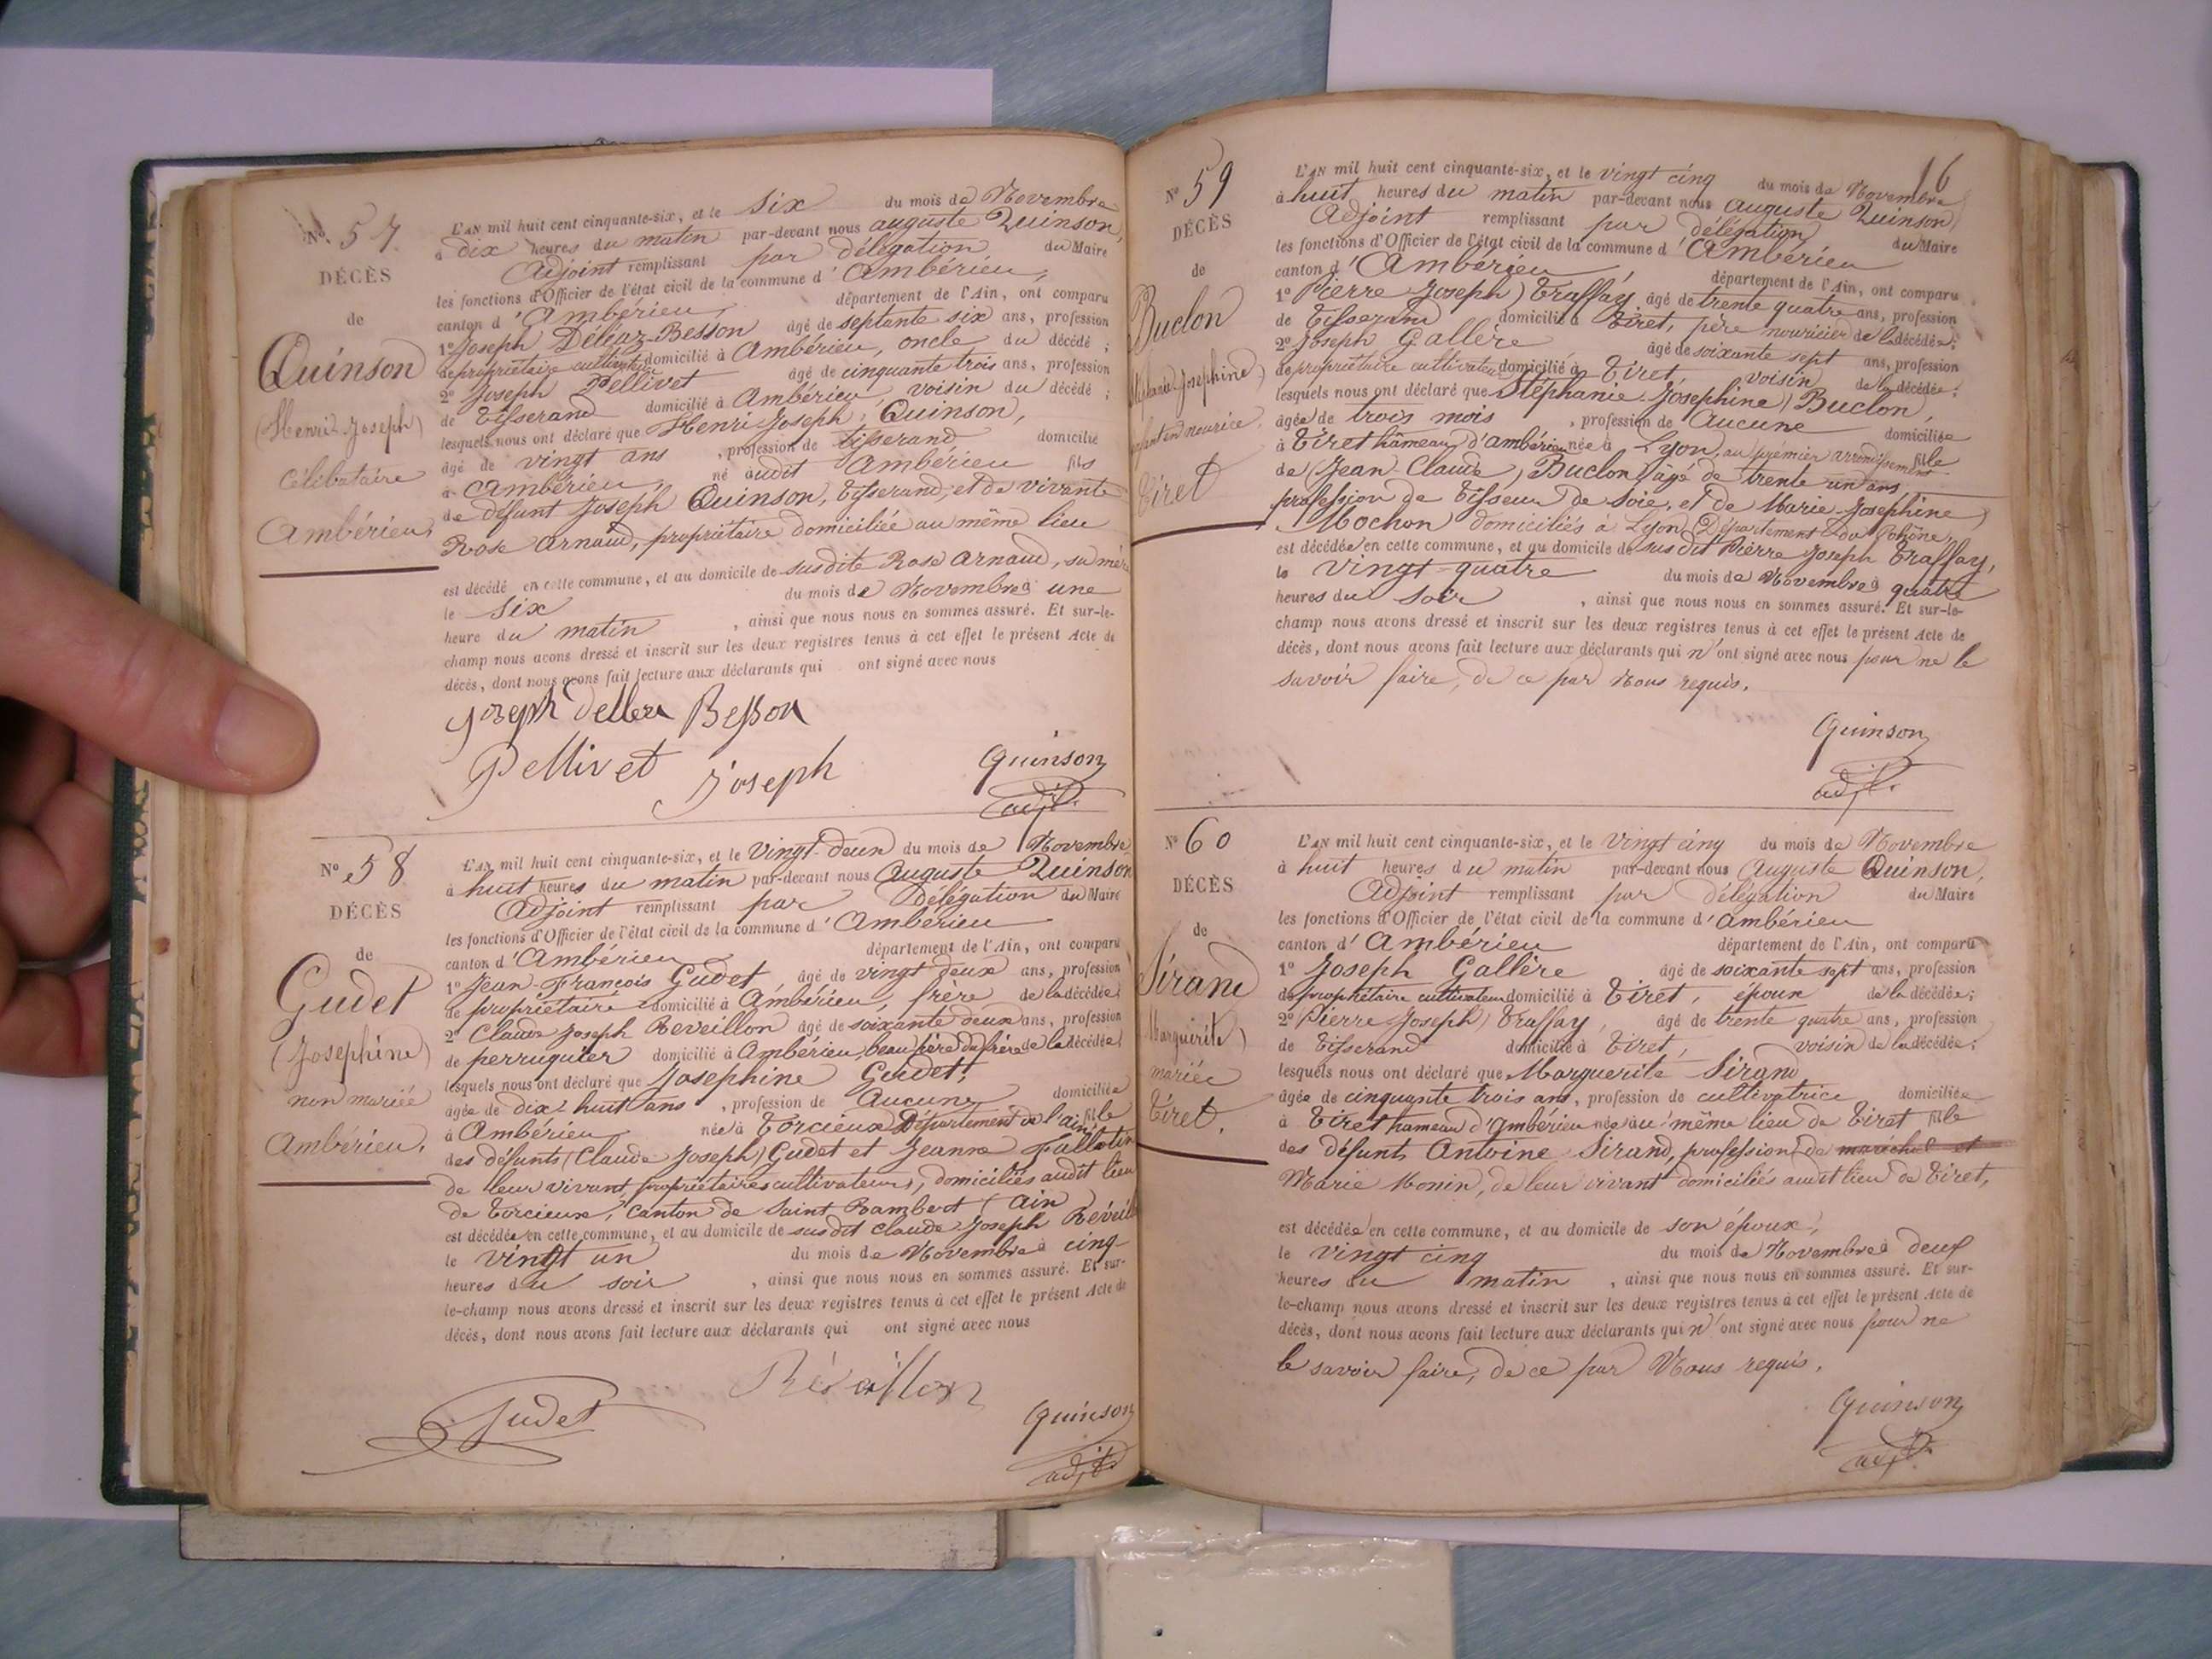 N° 57
DÉCÈS
de
Quinson
(Henri Joseph)
Célibataire
Ambérieu
L'AN mil huit cent cinquante-six, et le six du mois de Novembre
à dix heures du matin par-devant nous auguste Quinson,
Adjoint remplissant par délégation du Maire
les fonctions d'Officier de l'état civil de la commune d'Ambérieu,
canton d'Ambérieu, département de l'Ain, ont comparu
1° Joseph Déléaz-Besson âgé de septante six ans, profession
de propriétaire cultivateur domicilié à Ambérieu, oncle du décédé ;
2° Joseph Pellivet âgé de cinquante trois ans, profession
de Tisserand domicilié à Ambérieu, voisin du décédé ;
lesquels nous ont déclaré que Henri Joseph, Quinson,
âgé de vingt ans , profession de tisserand domicilié
à Ambérieu, né audit Ambérieu fils
de défunt Joseph Quinson, Tisserand, et de vivante
Rose Arnaud, propriétaire domiciliée au même lieu
est décédé en cette commune, et au domicile de susdite Rose Arnaud, sa mère
le six du mois de Novembre à une
heure du matin , ainsi que nous nous en sommes assuré. Et sur-le-
champ nous avons dressé et inscrit sur les deux registres tenus à cet effet le présent Acte de
décès, dont nous avons fait lecture aux déclarants qui ont signé avec nous
Joseph Besson
Pellivet Joseph
Quinson
adjt.
N° 58
DÉCÈS
de
Gudet
(Josephine)
non mariée
Ambérieu.
L'AN mil huit cent cinquante-six, et le Vingt-deux du mois de Novembre
à huit heures du matin par-devant nous Auguste Quinson
Adjoint remplissant par Délégation du Maire
les fonctions d'Officier de l'état civil de la commune d'Ambérieu
canton d'Ambérieu département de l'Ain, ont comparu
1° Jean-François Gudet âgé de vingt deux ans, profession
de propriétaire domicilié à Ambérieu, frère de la décédée
2° Claude Joseph Reveillon âgé de soixante deux ans, profession
de perruquier domicilié à Ambérieu, beau père du frère de la décédée
lesquels nous ont déclaré que Josephine Gudet,
âgée de dix-huit ans , profession de Aucune domiciliée
à Ambérieu née à Torcieux Département de l'ain, fille
des défunts (Claude Joseph) Gudet et Jeanne
de leur vivant, propriétaires cultivateurs, domiciliés audit lieu
de Torcieux, Canton de Saint Rambert (Ain
est décédée en cette commune, et au domicile de susdit Claude Joseph
le vingt un du mois de Novembre à cinq
heures du soir , ainsi que nous nous en sommes assuré. Et sur-
le-champ nous avons dressé et inscrit sur les deux registres tenus à cet effet le présent Acte de
décès, dont nous avons fait lecture aux déclarants qui ont signé avec nous
Gudet
Réveillon
Quinson
adjt.
16
N° 59
DÉCÈS
de
Buclon
Stéphanie Josephine)
enfant en nourice,
Tiret
L'AN mil huit cent cinquante-six, et le vingt cinq du mois de Novembre
à huit heures du matin par-devant nous Auguste Quinson
Adjoint remplissant par délégation du Maire
les fonctions d'Officier de l'état civil de la commune d'Ambérieu
canton d'Ambérieu département de l'Ain, ont comparu
1° (Pierre Joseph) Traffay, âgé de trente quatre ans, profession
de Tisserand domicilié à Tiret, père nouricier de la décédée ;
2° Joseph Gallère âgé de soixante sept ans, profession
de propriétaire cultivateur domicilié à Tiret voisin de la décédée ;
lesquels nous ont déclaré que Stéphanie Josephine) Buclon,
âgée de trois mois , profession de Aucune domiciliée
à Tiret hameau d'Ambérieu née à Lyon, au prémier arrondissement fille
de (Jean-Claude) Buclon, âgé de trente un ans
profession de Tisseur de Soie, et de Marie-Josephine
Mochon domiciliés à Lyon, Département du Rhône,
est décédée en cette commune, et au domicile de susdit Pierre Joseph Traffay,
le vingt-quatre du mois de Novembre à quatre
heures du soir , ainsi que nous nous en sommes assuré. Et sur-le-
champ nous avons dressé et inscrit sur les deux registres tenus à cet effet le présent Acte de
décès, dont nous avons fait lecture aux déclarants qui n'ont signé avec nous pour ne le
savoir faire, de ce par Nous requis.
Quinson
adjt.
N° 60
DÉCÈS
de
Sirand
Marguerite)
mariée
Tiret.
L'AN mil huit cent cinquante-six, et le Vingt cinq du mois de Novembre
à huit heures du matin par-devant nous Auguste Quinson,
Adjoint remplissant par délégation du Maire
les fonctions d'Officier de l'état civil de la commune d'Ambérieu
canton d'Ambérieu département de l'Ain, ont comparu
1° Joseph Gallère âgé de soixante sept ans, profession
de propriétaire cultivateur domicilié à Tiret, époux de la décédée ;
2° (Pierre Joseph) Traffay, âgé de trente quatre ans, profession
de Tisserand domicilié à Tiret, voisin de la décédée ;
lesquels nous ont déclaré que Marguerite Sirand
âgée de cinquante trois ans, profession de cultivatrice domiciliée
à Tiret hameau d'Ambérieu née au même lieu de Tiret fille
des défunts Antoine Sirand, profession de maréchal et
Marie Monin, de leur vivant domiciliés audit lieu de Tiret,
est décédée en cette commune, et au domicile de son époux,
le vingt cinq du mois de Novembre à deux
heures du matin , ainsi que nous nous en sommes assuré. Et sur-
le-champ nous avons dressé et inscrit sur les deux registres tenus à cet effet le présent Acte de
décès, dont nous avons fait lecture aux déclarants qui n'ont signé avec nous pour ne
le savoir faire, de ce par Nous requis.
Quinson
adjt.